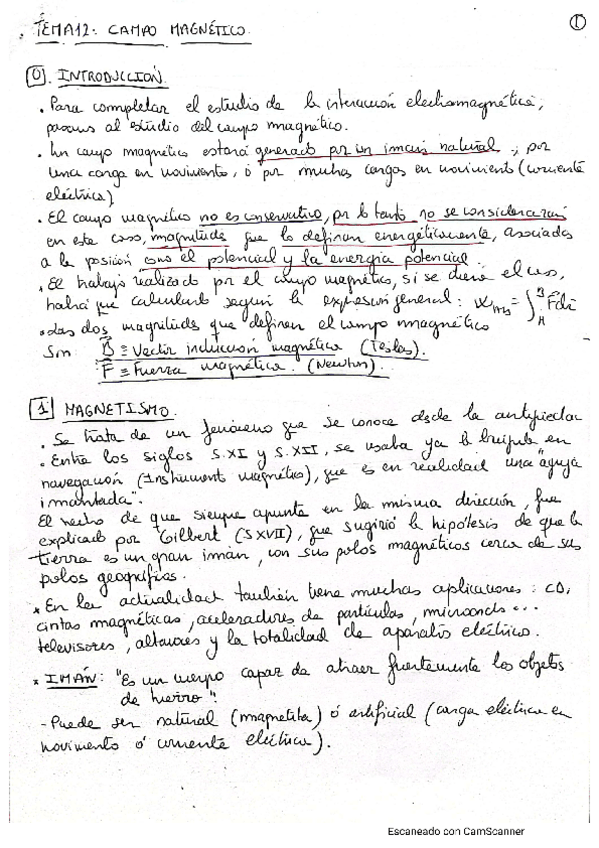 TEMA 12: CAMPO MAGNÉTICO. 1
0. INTRODUCCIÓN
. Para completar el estudio de la interacción electromagnética,
pasamos al estudio del campo magnético.
. Un campo magnético estará generado por un imán natural, por
una carga en movimiento, ó por muchas cargas en movimiento (corriente
eléctrica)
. El campo magnético no es conservativo, por lo tanto no se considerarán
en este caso, magnitudes que lo definan energéticamente, asociadas
a la posición como el potencial y la energía potencial.
. El trabajo realizado por el campo magnético, si se diera el caso,
habrá que calcularlo según la expresión general: W = ∫ F dr
. Las dos magnitudes que definen el campo magnético
son: B ≡ Vector inducción magnética (Teslas).
F ≡ Fuerza magnética. (Newton).
1 MAGNETISMO.
. Se trata de un fenómeno que se conoce desde la antigüedad
. Entre los siglos S.XI y S.XII, se usaba ya la brújula en
navegación (Instrumento magnético), que es en realidad una "aguja
imantada".
El hecho de que siempre apunte en la misma dirección, fue
explicado por Gilbert (S XVII), que sugirió la hipótesis de que la
tierra es un gran imán, con sus polos magnéticos cerca de sus
polos geográficos.
* En la actualidad también tiene muchas aplicaciones: CD,
cintas magnéticas, aceleradores de partículas, microondas...
televisores, altavoces y la totalidad de aparatos eléctricos.
* IMÁN: "Es un cuerpo capaz de atraer fuertemente los objetos
de hierro".
- Puede ser natural (magnetita) ó artificial (carga eléctrica en
movimiento ó corriente eléctrica).
Escaneado con CamScanner